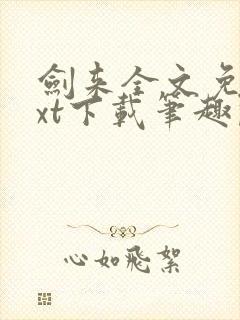 劍来全文免
xt下載筆趣
心如飛絮